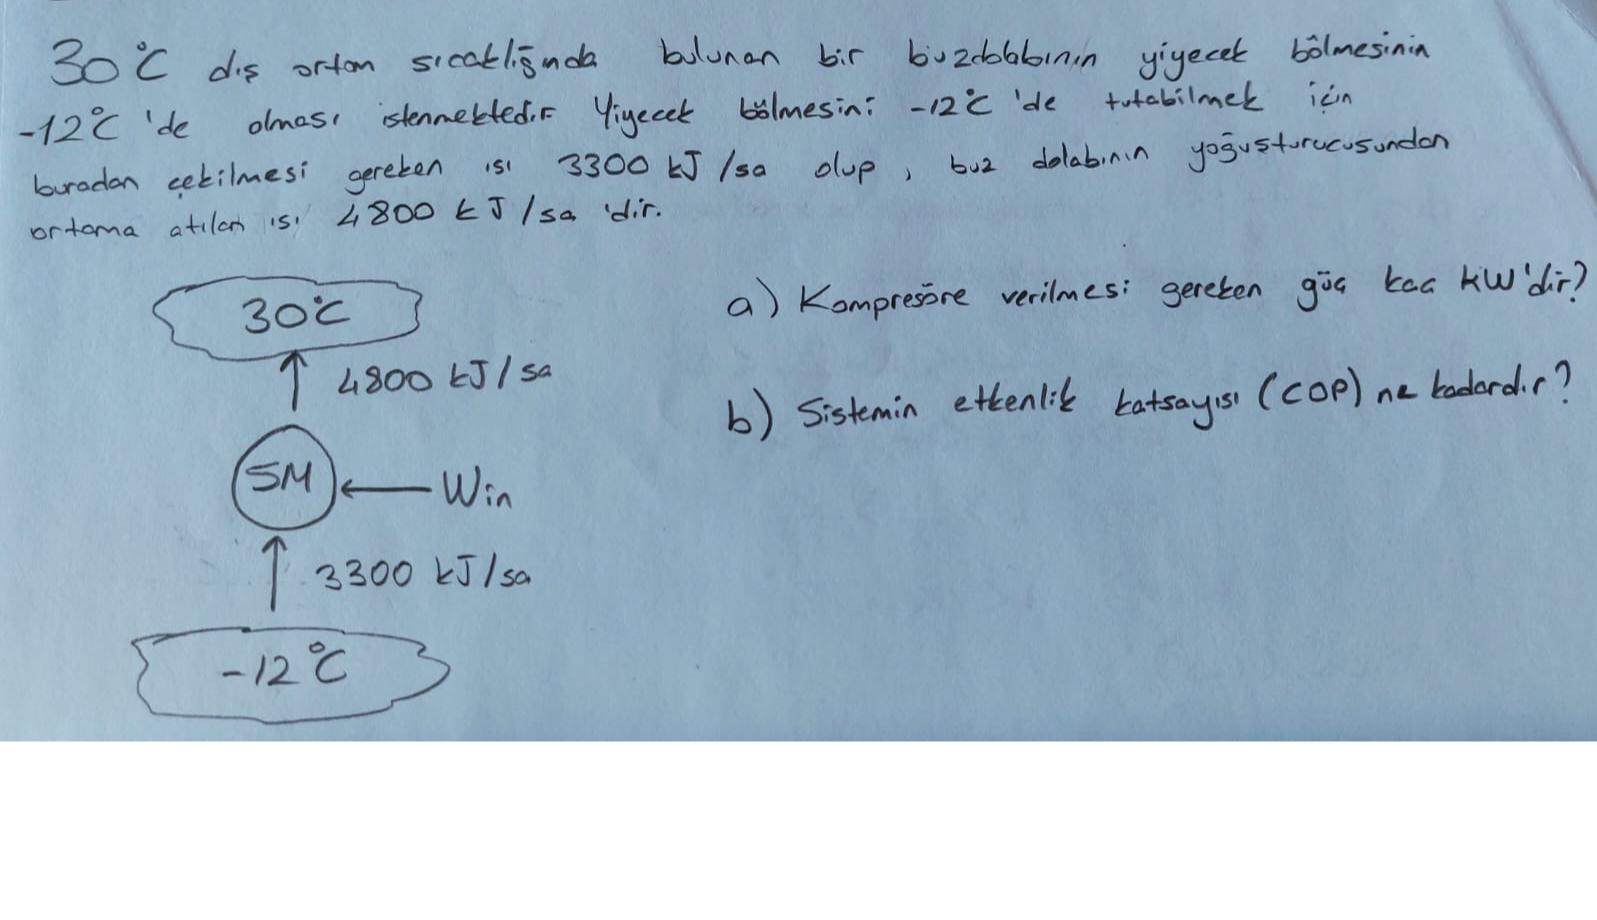 30°C dış ortam sıcaklığında bulunan bir buzdolabının yiyecek bölmesinin
-12°C 'de olması istenmektedir Yiyecek bölmesini -12°C 'de tutabilmek için
buradan çekilmesi gereken ısı 3300 kJ/sa olup, buz dolabının yoğuşturucusundan
ortama atılan ısı 4800 kJ/sa 'dir.
30°C
4800 kJ/sa
SM
Win
3300 kJ/sa
-12°C
a) Kompresöre verilmesi gereken güç kaç kW'dir?
b) Sistemin etkenlik katsayısı (COP) ne kadardır?